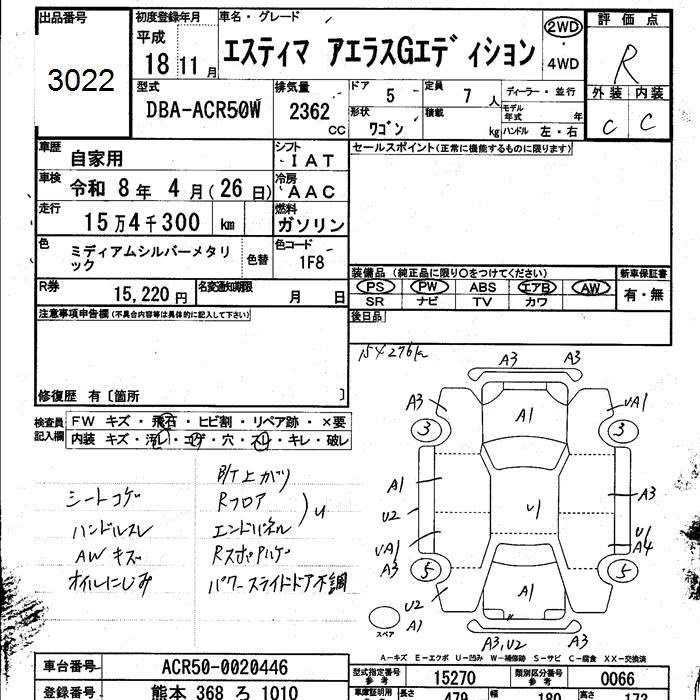 出品番号
3022
初度登録年月
平成
18 11 月
車名・グレード
エスティマ アエラスGエディション
2WD
・
4WD
評価点
R
外装 内装
C C
型式
DBA-ACR50W
排気量
2362
cc
ドア 5
定員 7 人
形状 ワゴン
積載 kg
ディーラー・並行
モデル年式 年
ハンドル 左・右
車歴 自家用
シフト IAT
車検 令和 8 年 4 月(26 日)
冷房 AAC
走行 15万4千300 km
燃料 ガソリン
色 ミディアムシルバーメタリック
色替
色コード 1F8
R券 15,220 円
名変通知期限 月 日
セールスポイント(正常に機能するものに限ります)
装備品 (純正品に限り○をつけてください)
新車保証書
PS PW ABS エアB AW
SR ナビ TV カワ
有・無
後日品
注意事項申告欄(不具合内容等は具体的に記入して下さい)
修復歴 有〔箇所 〕
154276km
検査員記入欄
FW キズ・飛石・ヒビ割・リペア跡・×要
内装 キズ・汚レ・コゲ・穴・スレ・キレ・破レ
シートコゲ
ハンドルスレ
AWキズ
オイルにじみ
B/T上がり
Rフロア
エンドパネル
U
Rスポアルゲ
パワースライドドア不調
A3 A3
A3 A1 UA1
3 3
A1 U1 A3
U2 U1
UA1 A4
A3
5 5
A1
U2
A1
スペア
A3,U2 A1
A-キズ E-エクボ U-凹み W-補修跡 S-サビ C-腐食 XX-交換済
車台番号 ACR50-0020446
登録番号 熊本 368 ろ 1010
型式指定番号 参考 15270
類別区分番号 参考 0066
車庫証明用 参考
長さ 479
幅 180
高さ 173